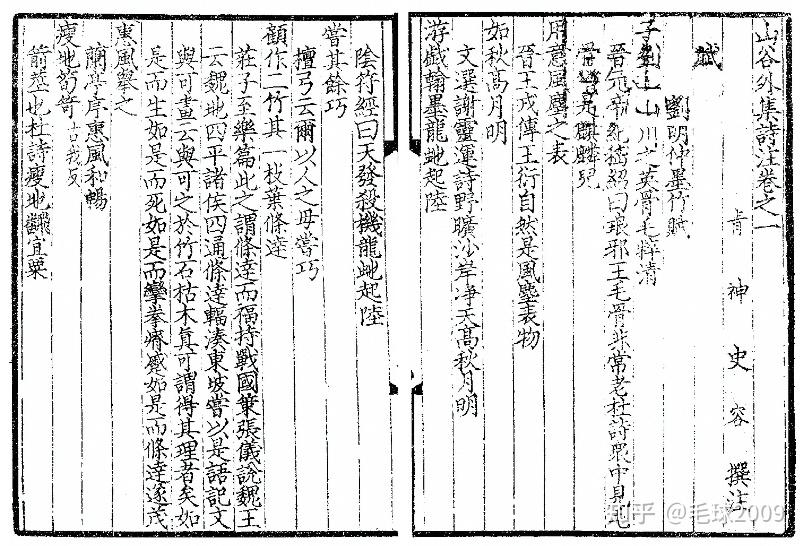 山谷外集詩注卷之一
肯神史容撰注
賦
劉明仲墨竹賦
子劉子山川之英骨毛粹清
晉元帝紀嵇紹曰琅邪王毛骨非常老杜詩衆中見毛
骨是麒麟兒
用意風塵之表
晉王戎傳王衍自然是風塵表物
如秋高月明
文選謝靈運詩野曠沙岸淨天高秋月明
游戲翰墨龍虵起陸
陰符經曰天發殺機龍虵起陸
嘗其餘巧
檀弓云爾以人之母嘗巧
顧作二竹其一枝葉條達
莊子至樂篇此之謂條達而福持戰國策張儀說魏王
云魏地四平諸侯四通條達輻湊東坡嘗以是語記文
與可畫云與可之於竹石枯木真可謂得其理者矣如
是而生如是而死如是而攣拳瘠蹙如是而條達遂茂
惠風舉之
蘭亭序惠風和暢
瘦地筍笴古我反
箭莖也杜詩瘦地翻宜粟
知乎 @毛球2009